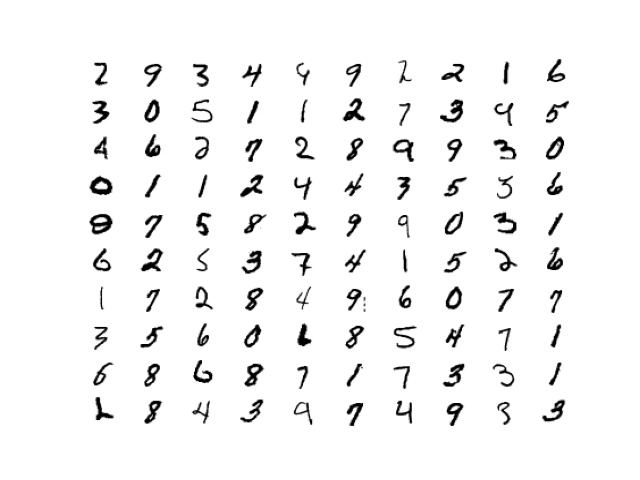 2 9 3 4 9 9 2 2 1 6
3 0 5 1 1 2 7 3 9 5
4 6 2 7 2 8 9 9 3 0
0 1 1 2 4 4 3 5 3 6
7 5 8 2 9 9 0 3 1
6 2 5 3 7 4 1 5 2 6
1 7 2 8 4 9 6 0 7 7
3 5 6 0 6 8 5 4 7 1
6 8 6 8 7 1 7 3 3 1
8 4 3 9 7 4 9 3 3